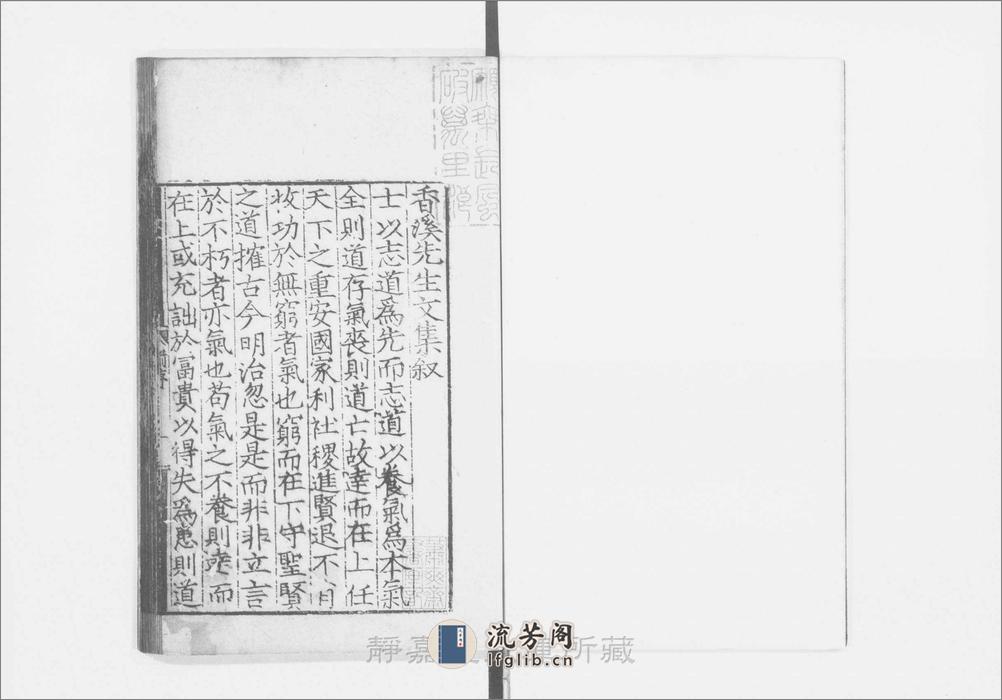 香溪先生文集叙
士以志道爲先而志道以養氣爲本氣
全則道存氣喪則道亡故達而在上任
天下之重安國家利社稷進賢退不肖
收功於無窮者氣也窮而在下守聖賢
之道搉古今明治忽是是而非非立言
於不朽者亦氣也苟氣之不養則達而
在上或充詘於富貴以得失爲患則道
靜嘉 所藏
流芳阁
lfglib.cn